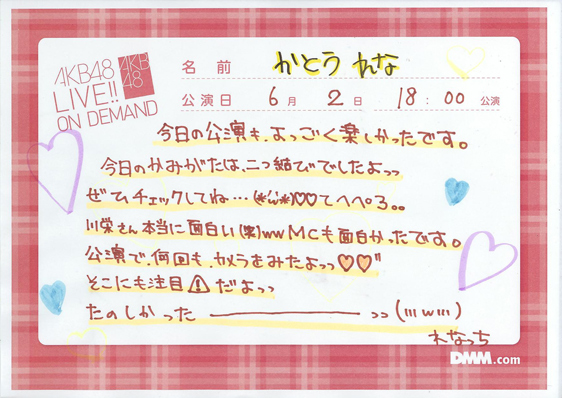 AKB48
LIVE!!
ON DEMAND
AKB
48
名前 かとう れな
公演日 6月 2日 18:00 公演
今日の公演も、よっごく楽しかったです。
今日のかみがたは、二つ結びでしたよっっ
ぜひチェックしてね…(*'ω'*)♡♡てへぺろ。。
川栄さん本当に面白い(笑)ww MCも面白かったです。
公演で、何回も、カメラをみたよっっ♡♡"
そこにも注目⚠だよっっ
たのしかった ――――――― っっ (ııı w ııı)
れなっち
DMM.com